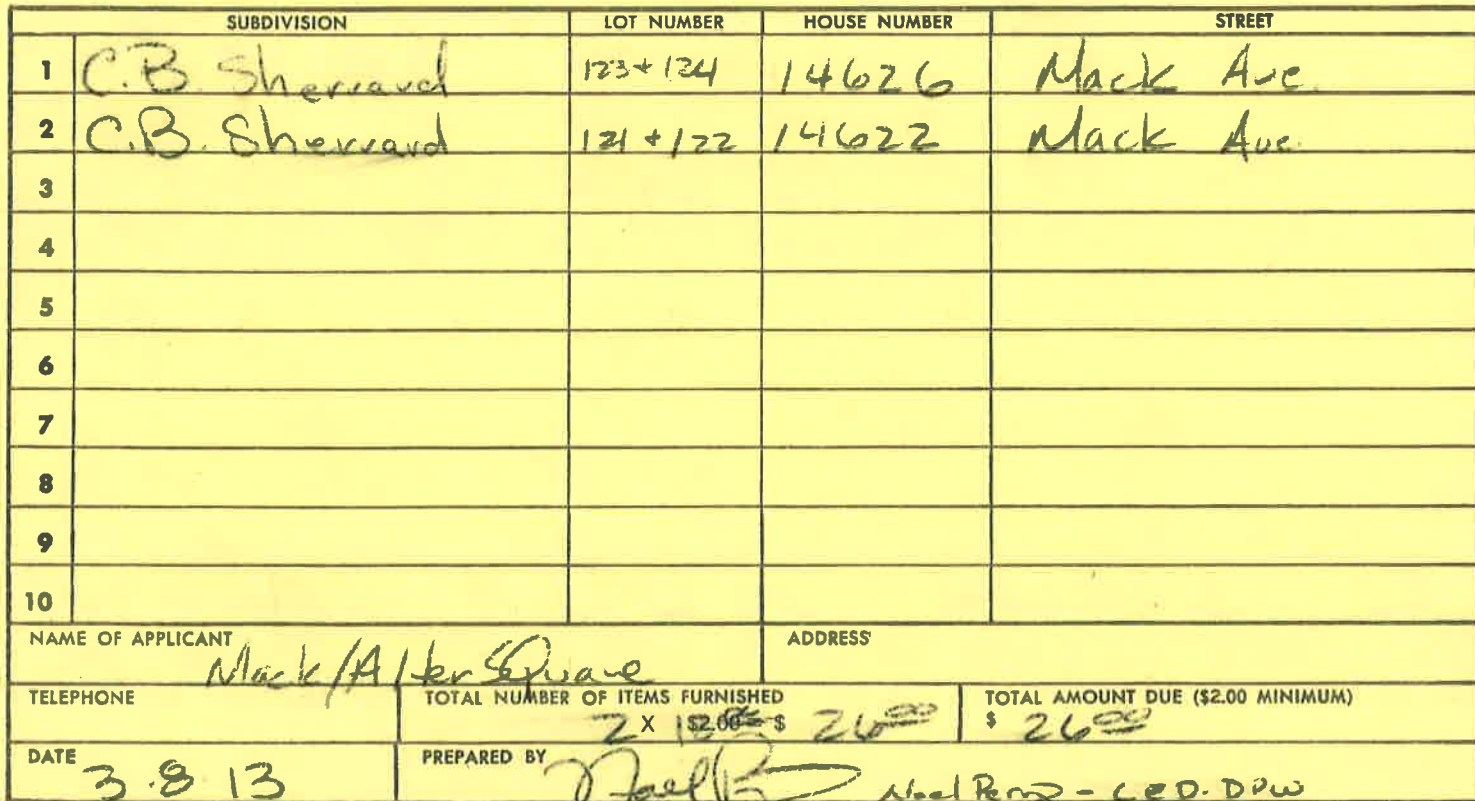 SUBDIVISION LOT NUMBER HOUSE NUMBER STREET
1 C.B. Sherrard 123+124 14626 Mack Ave.
2 C.B. Sherrard 121+122 14622 Mack Ave.
3
4
5
6
7
8
9
10
NAME OF APPLICANT ADDRESS
Mack/Alter Square
TELEPHONE TOTAL NUMBER OF ITEMS FURNISHED TOTAL AMOUNT DUE ($2.00 MINIMUM)
2 X $2.00 = $ 26.00 $ 26.00
DATE PREPARED BY
3.8.13 Noel - CED-DPW